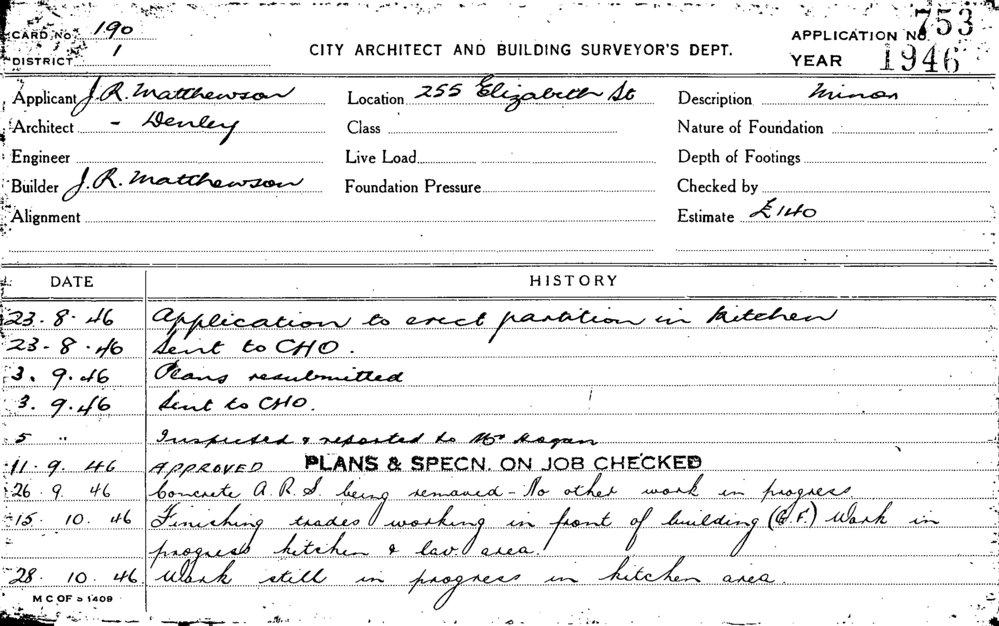 CARD No. 190 APPLICATION No 753
DISTRICT 1 CITY ARCHITECT AND BUILDING SURVEYOR'S DEPT. YEAR 1946
Applicant J. R. Matthewson Location 255 Elizabeth St Description Minor
Architect - Denley Class Nature of Foundation
Engineer Live Load Depth of Footings
Builder J. R. Matthewson Foundation Pressure Checked by
Alignment Estimate £140
DATE HISTORY
23.8.46 Application to erect partition in kitchen
23-8.46 Sent to CHO.
3.9.46 Plans resubmitted
3.9.46 Sent to CHO.
5 " Inspected & reported to Mr Hogan
11.9.46 APPROVED PLANS & SPECN. ON JOB CHECKED
26.9.46 Concrete A.R.S. being removed - No other work in progress
15.10.46 Finishing trades working in front of building (G.F.) Work in
progress kitchen & lav. area
28.10.46 Work still in progress in kitchen area.
M C OF 1409